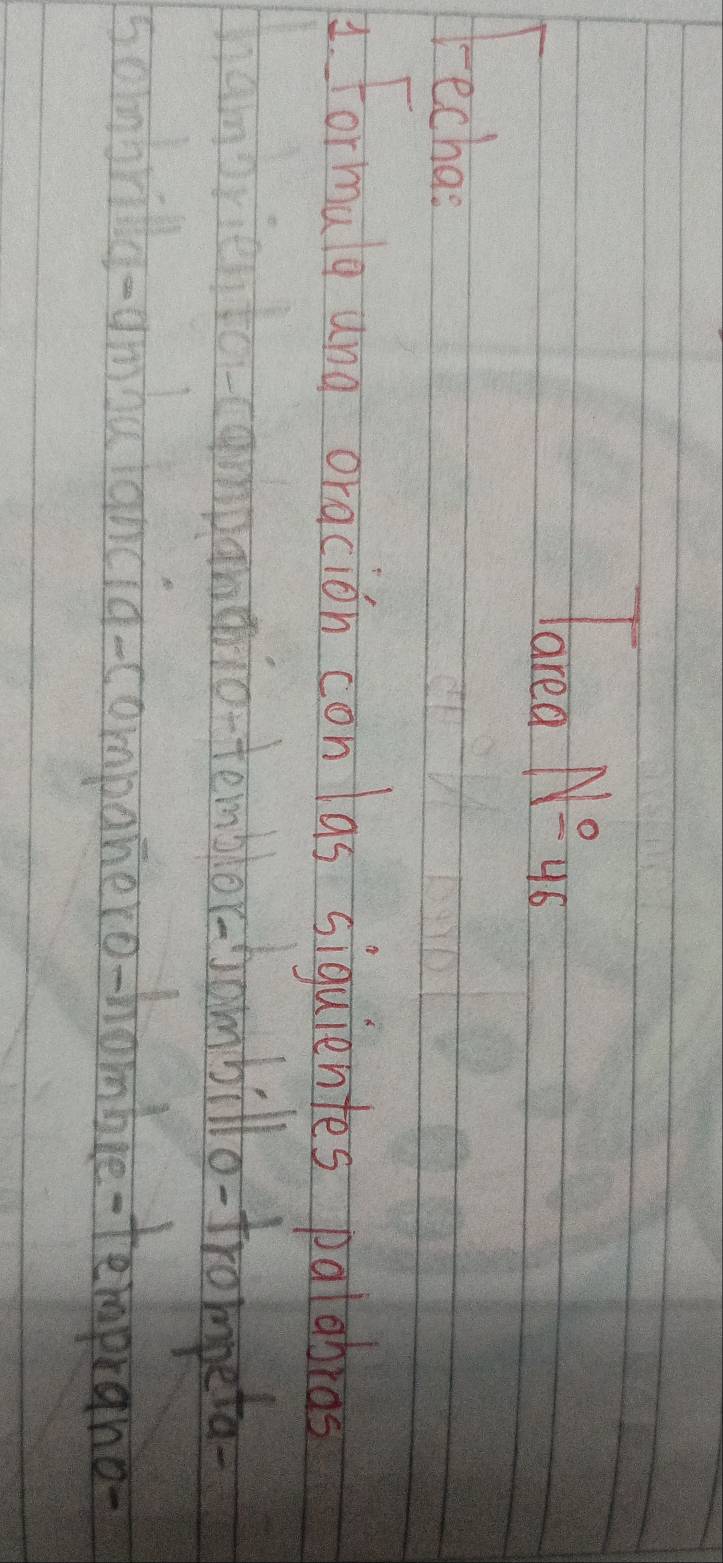 Tarea Nº 46
Fecha:
1. Formulo una oración con las siguientes palabras
hambrienta-campanario-temblor-bombillo-trompeta-
sombrilla-ambulancia-compañero-hombre-temprano-